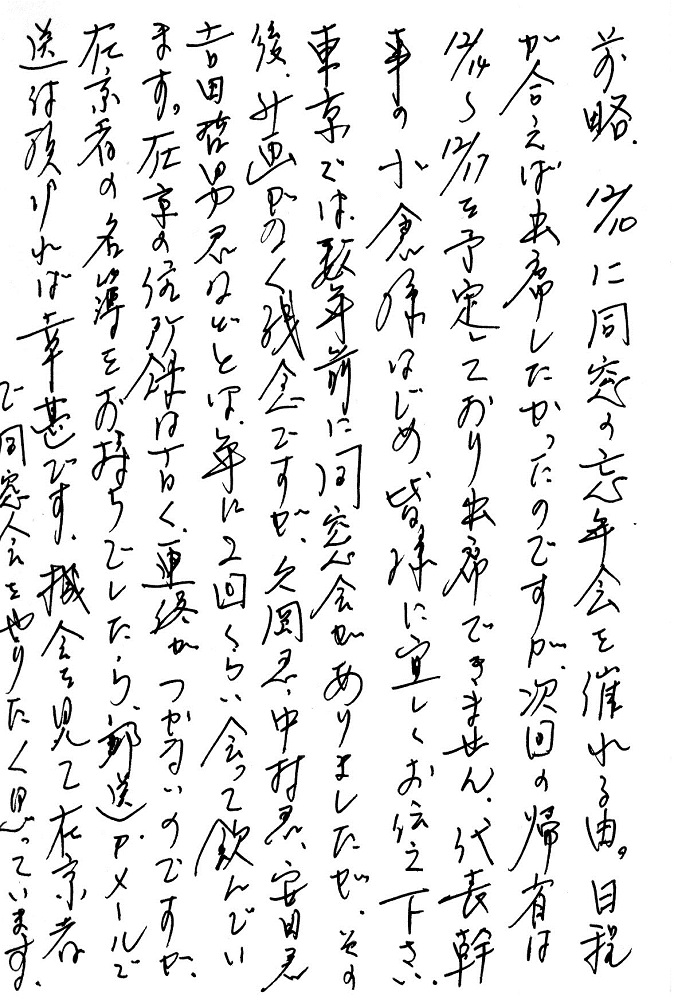 前略、12/10に同窓の忘年会を催れる由。日程
が合えば出席したかったのですが、次回の帰省は
12/14〜12/17を予定しており出席できません。代表幹
事の小倉様はじめ皆様に宜しくお伝え下さい。
東京では、数年前に同窓会がありましたが、その
後、計画がなく残念ですが、久岡君、中村君、安田君
吉田哲男君などとは、年に2回くらい会って飲んでい
ます。在京の住所録は古く、連絡がつかないのですが、
在京者の名簿をお持ちでしたら、郵送かメールで
送付頂ければ幸甚です。機会を見て在京者
で同窓会をやりたく思っています。